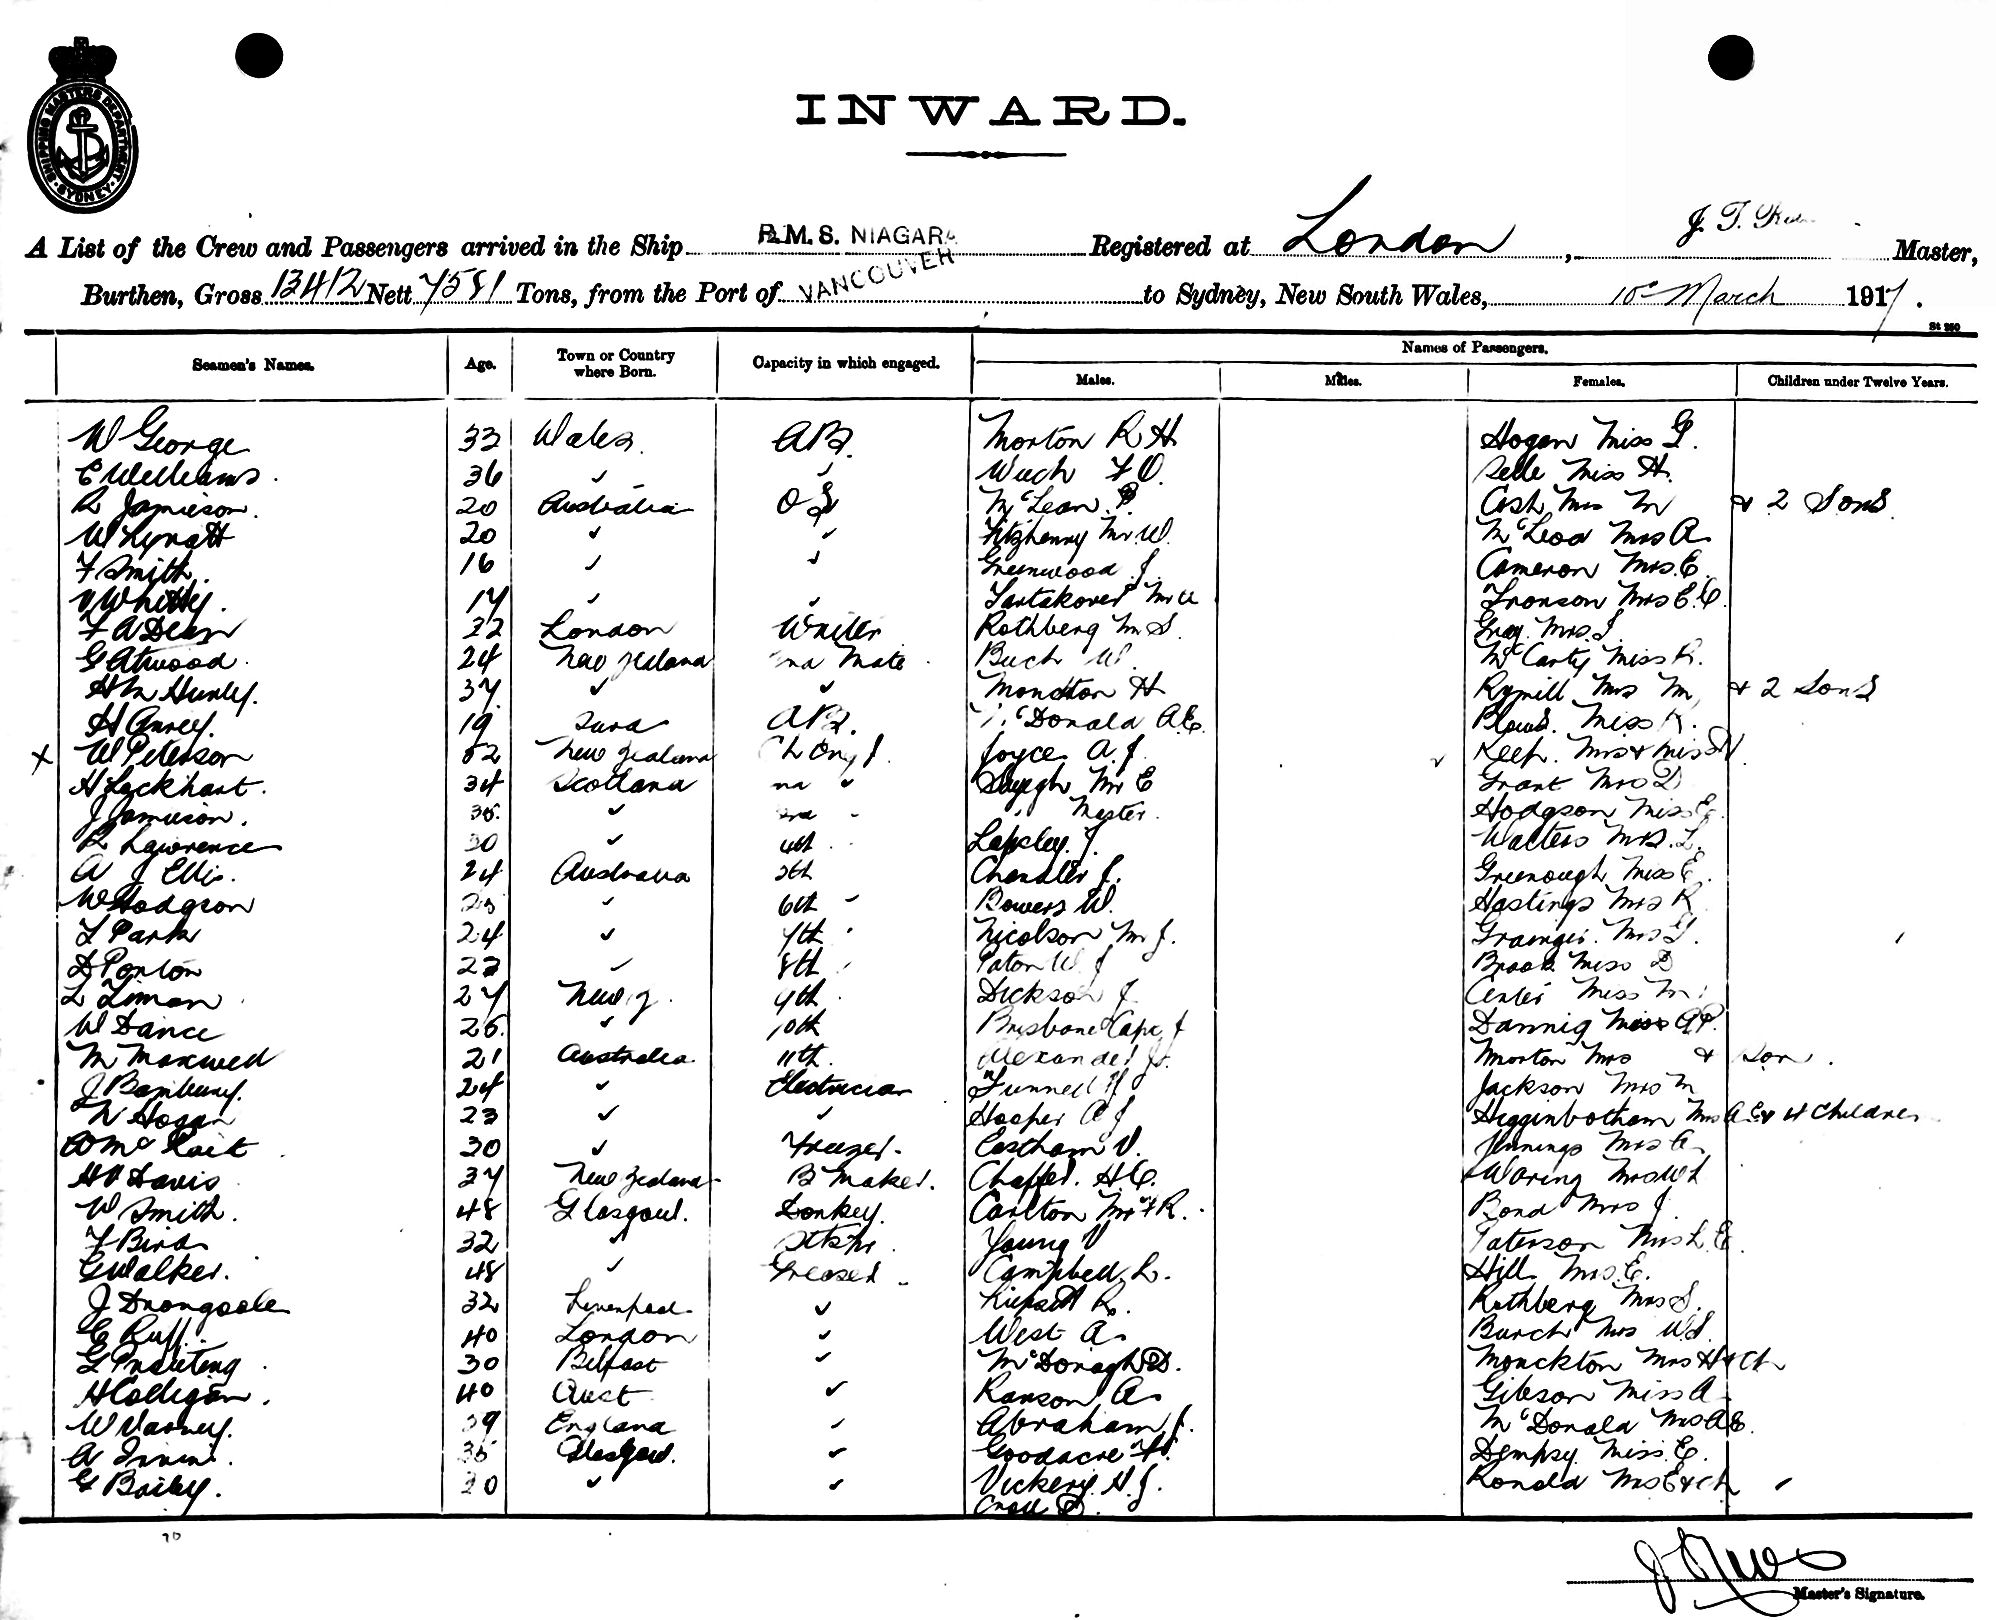 SHIPPING MASTERS DEPARTMENT SYDNEY
INWARD.
A List of the Crew and Passengers arrived in the Ship R.M.S. NIAGARA Registered at London, J. T. Master,
Burthen, Gross 13412 Nett 7581 Tons, from the Port of VANCOUVER to Sydney, New South Wales, 10 March 1917.
St 250
Seamen's Names. Age. Town or Country where Born. Capacity in which engaged. Names of Passengers.
Males. Males. Females. Children under Twelve Years.
W George 33 Wales. AB. Morton R H Hogan Miss G.
E Williams. 36 ✓ ✓ Wuch F O. Selle Miss H.
R Jamieson. 20 Australia O S McLean. P. Cash Mrs M & 2 Sons
W Lynatt 20 ✓ ✓ Fitzhenny Mr. W. McLeod Mrs A
F Smith. 16 ✓ ✓ Greenwood J. Cameron Mrs. E
V Whitty. 17 ✓ ✓ Tartakover Mr Tronson Mrs E. C.
F A Dean 22 London Writer Rothberg Mr S. Gray. Mrs. J.
G Atwood. 24 New Zealand Mate Buch W. McCarty Miss R.
H M Hunley. 37 ✓ ✓ Monckton H Rymill Mrs M, & 2 Sons
H 19 AB. McDonald A. E. Miss K.
X W Peterson 52 New Zealand Ch Eng J. Joyce A. J. Keep. Mrs & Miss
H Lockhart. 34 Scotland ✓ Sayegh Mr E Grant Mrs D
J Jamieson. 35. ✓ Master. Hodgson Miss E
R Lawrence 30 ✓ 4th Lapsley. J. Walters Mrs. L.
A J Ellis. 24 Australia 5th Chandler J. Greenough Miss E.
W Hodgson ✓ 6th Bowers W. Hastings Mrs R
L Park 24 ✓ 7th Nicolson Mr J. Grainger. Mrs G.
D Ponton 22 ✓ 8th Paton W. J Brook Miss D
L Liman 27 New Z. 9th Dickson J. Center Miss M.
W Dance 26. ✓ 10th Brisbane Capt J Dannig Miss A P.
M Maxwell 21 Australia 11th. Alexander Morton Mrs & Son.
J Bambury. 24 ✓ Electrician Funnell Jackson Mrs M
N Hogan 23 ✓ ✓ Hooper A J Higginbotham Mrs A E & 4 Children
30 ✓ Freezer. Eastham V. Jennings Mrs A.
H V Davis 37 New Zealand B Maker. Chaffer. H. C. Waring Mrs
W Smith. 48 Glasgow. Donkey. Carlton Mr F R. Bond Mrs J
F Bird 32 ✓ Stkpr. Young V Paterson Mrs L. E.
G Walker. 48 ✓ Greaser. Campbell L. Hill Mrs. E.
J Drongoole 32 Liverpool ✓ R. Rothberg Mrs S.
E Ruff. 40 London ✓ West A. Burch Mrs W S.
G 30 Belfast ✓ McDonagh D. Monckton Mrs H & Ch
H Colligan. 40 Aust ✓ Ranson A. Gibson Miss A
W Varney. 39 England ✓ Abraham J. McDonald Mrs A E.
A 35 Glasgow. ✓ Goodacre Dempsy Miss. E.
G Bailey. 30 ✓ ✓ Vickery H. J. Ronald Mrs E & Ch
Master's Signature.